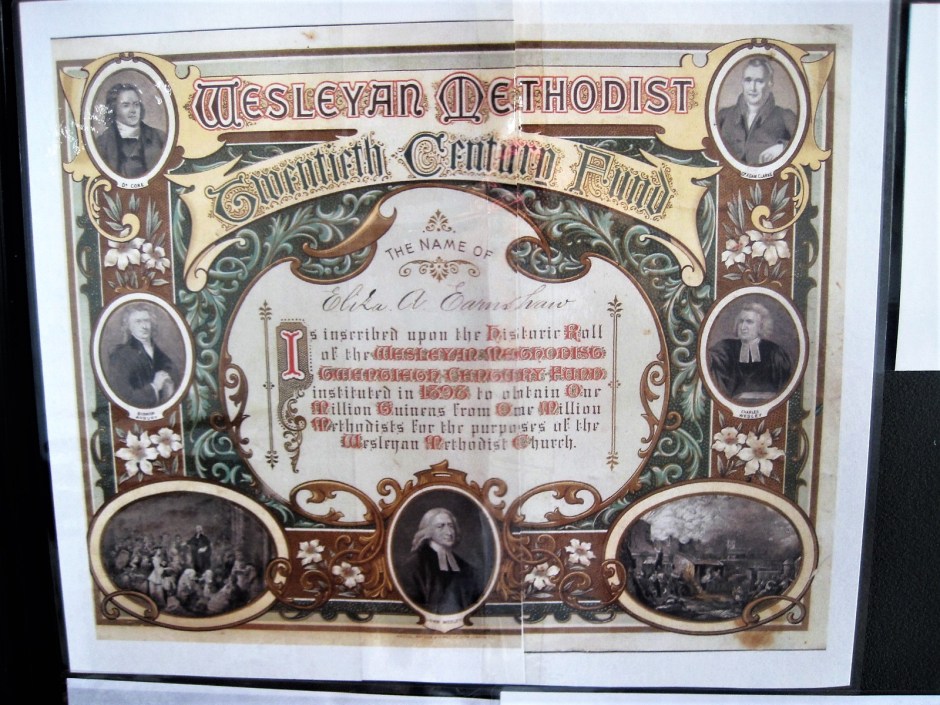 WESLEYAN METHODIST
Twentieth Century Fund
DR COKE
DR ADAM CLARKE
THE NAME OF
Eliza A Earnshaw
Is inscribed upon the Historic Roll
of the WESLEYAN METHODIST
TWENTIETH CENTURY FUND
instituted in 1898 to obtain One
Million Guineas from One Million
Methodists for the purposes of the
Wesleyan Methodist Church.
SUSANNA WESLEY
CHARLES WESLEY
JOHN WESLEY